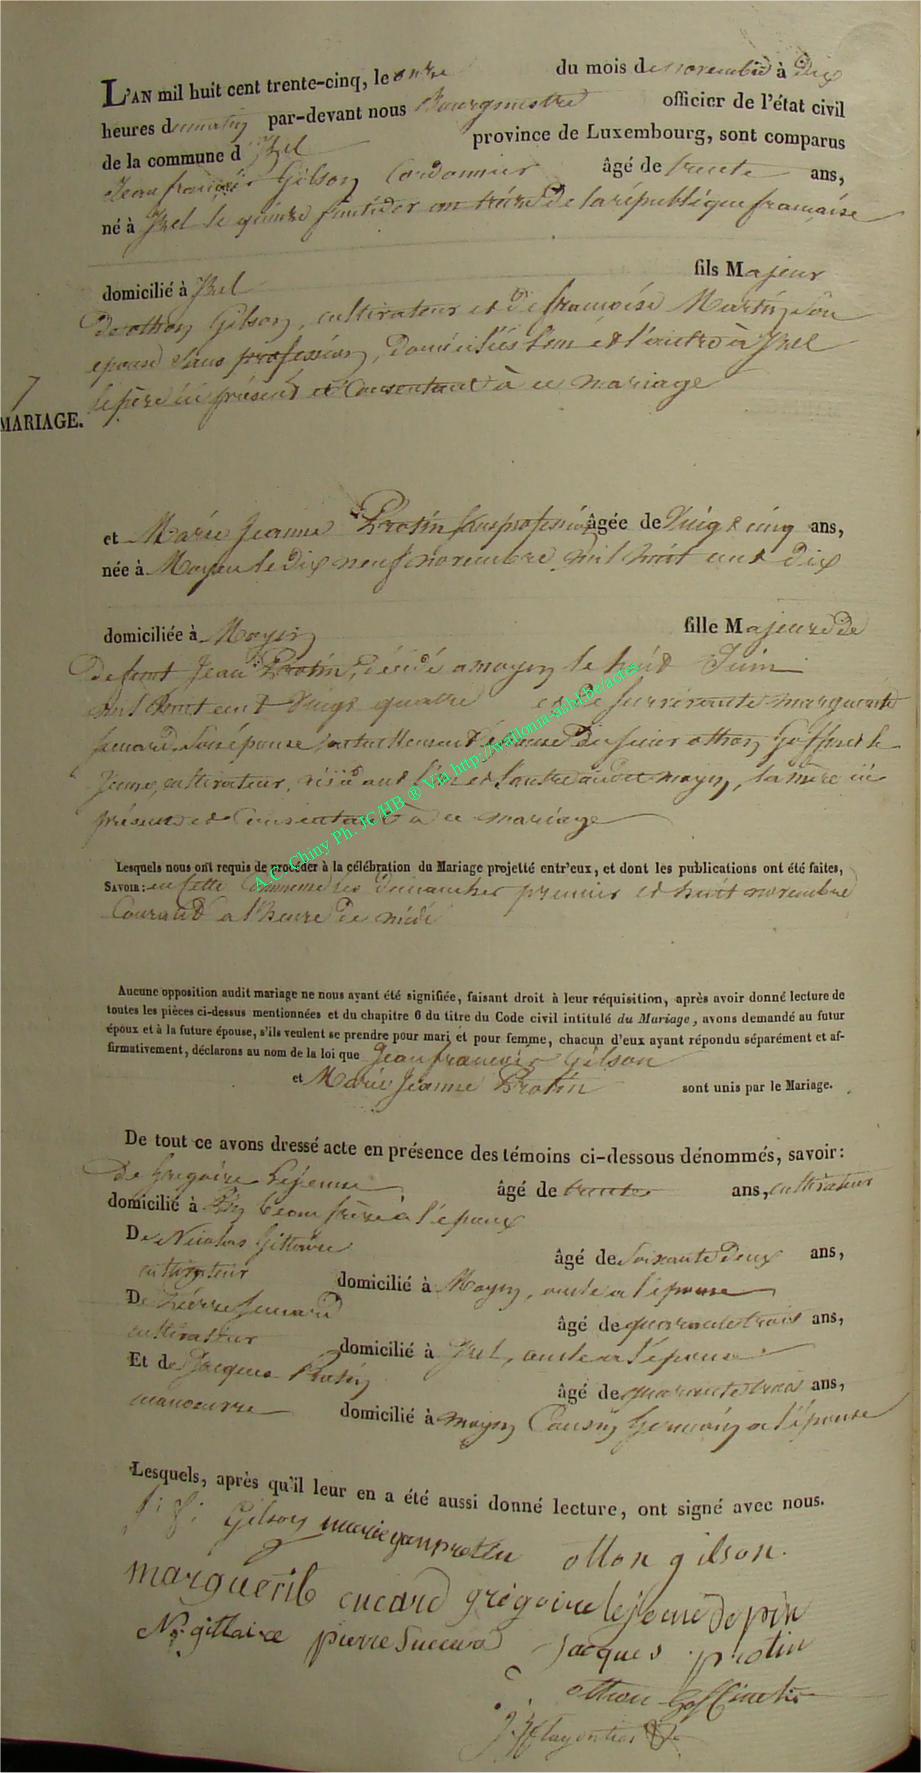 L'AN mil huit cent trente-cinq, le onze du mois de novembre à dix
heures du matin par-devant nous Bourgmestre officier de l'état civil
de la commune d'Izel province de Luxembourg, sont comparus
Jean françois Gilson Cordonnier âgé de trente ans,
né à Izel le quinze fructidor an treize De la république française
domicilié à Izel fils Majeur
De othon Gilson, cultivateur et de françoise Martin son
epouse sans profession, Domiciliés l'un et l'autre à Izel
le père ici présent et Consentant à ce mariage
7
MARIAGE.
et Marie Jeanne Protin sans profession âgée de vingt cinq ans,
née à Moyen le dix neuf novembre mil huit cent dix
domiciliée à Moyen fille Majeure de
Defunt Jean Protin, décédé a moyen le huit Juin
mil huit cent vingt quatre et de survivante marguerite
son épouse actuellement épouse Du sieur othon Goffinet le
Jeune, cultivateur, résidant l'un et l'autre audit moyen, la mère ici
présente et Consentante à ce mariage
Lesquels nous ont requis de procéder à la célébration du Mariage projetté entr'eux, et dont les publications ont été faites,
SAVOIR: en cette Commune les dimanches premier et huit novembre
Courant a l'heure de midi
Aucune opposition audit mariage ne nous ayant été signifiée, faisant droit à leur réquisition, après avoir donné lecture de
toutes les pièces ci-dessus mentionnées et du chapitre 6 du titre du Code civil intitulé du Mariage, avons demandé au futur
époux et à la future épouse, s'ils veulent se prendre pour mari et pour femme, chacun d'eux ayant répondu séparément et af-
firmativement, déclarons au nom de la loi que Jean françois Gilson
et Marie Jeanne Protin sont unis par le Mariage.
De tout ce avons dressé acte en présence des témoins ci-dessous dénommés, savoir:
De Gregoire Lejeune âgé de trente ans, cultivateur
domicilié à Pin beau frère à l'epoux
De Nicolas Gillaire âgé de soixante deux ans,
cultivateur domicilié à Moyen, oncle a l'épouse
De Pierre Suenard âgé de quarante trois ans,
cultivateur domicilié à Izel, oncle a l'épouse
Et de Jacques Protin âgé de quarante trois ans,
manoeuvre domicilié à moyen Cousin Germain a l'épouse
Lesquels, après qu'il leur en a été aussi donné lecture, ont signé avec nous.
j: f: Gilson marie jean protin otton gilson.
marguerite grégoire lejeune de pin
N. gillaire pierre Jacques protin
othon Goffinet
A.C. Chiny Ph. JC/HB ® Via http://wallonia-asbl.be/actes/